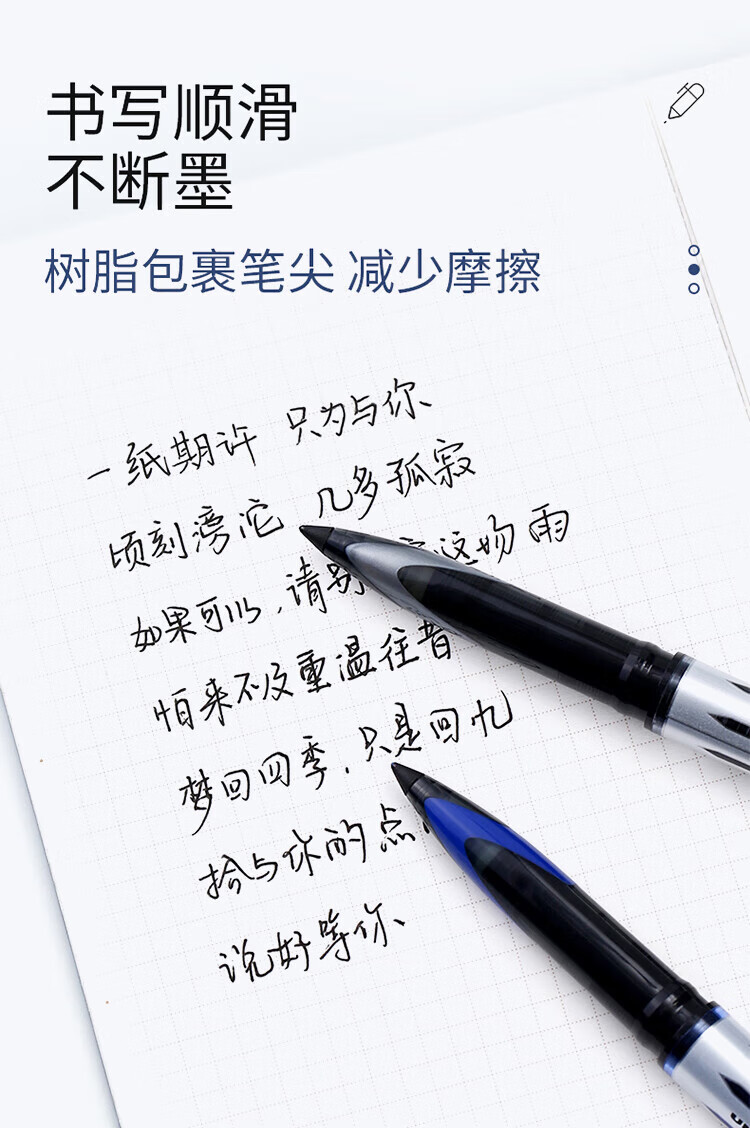 书写顺滑
不断墨
树脂包裹笔尖 减少摩擦
一纸期许 只为与你
顷刻滂沱 几多孤寂
如果可以,请别 这场雨
怕来不及重温往昔
梦回四季,只是回忆
拾与你的点
说好等你